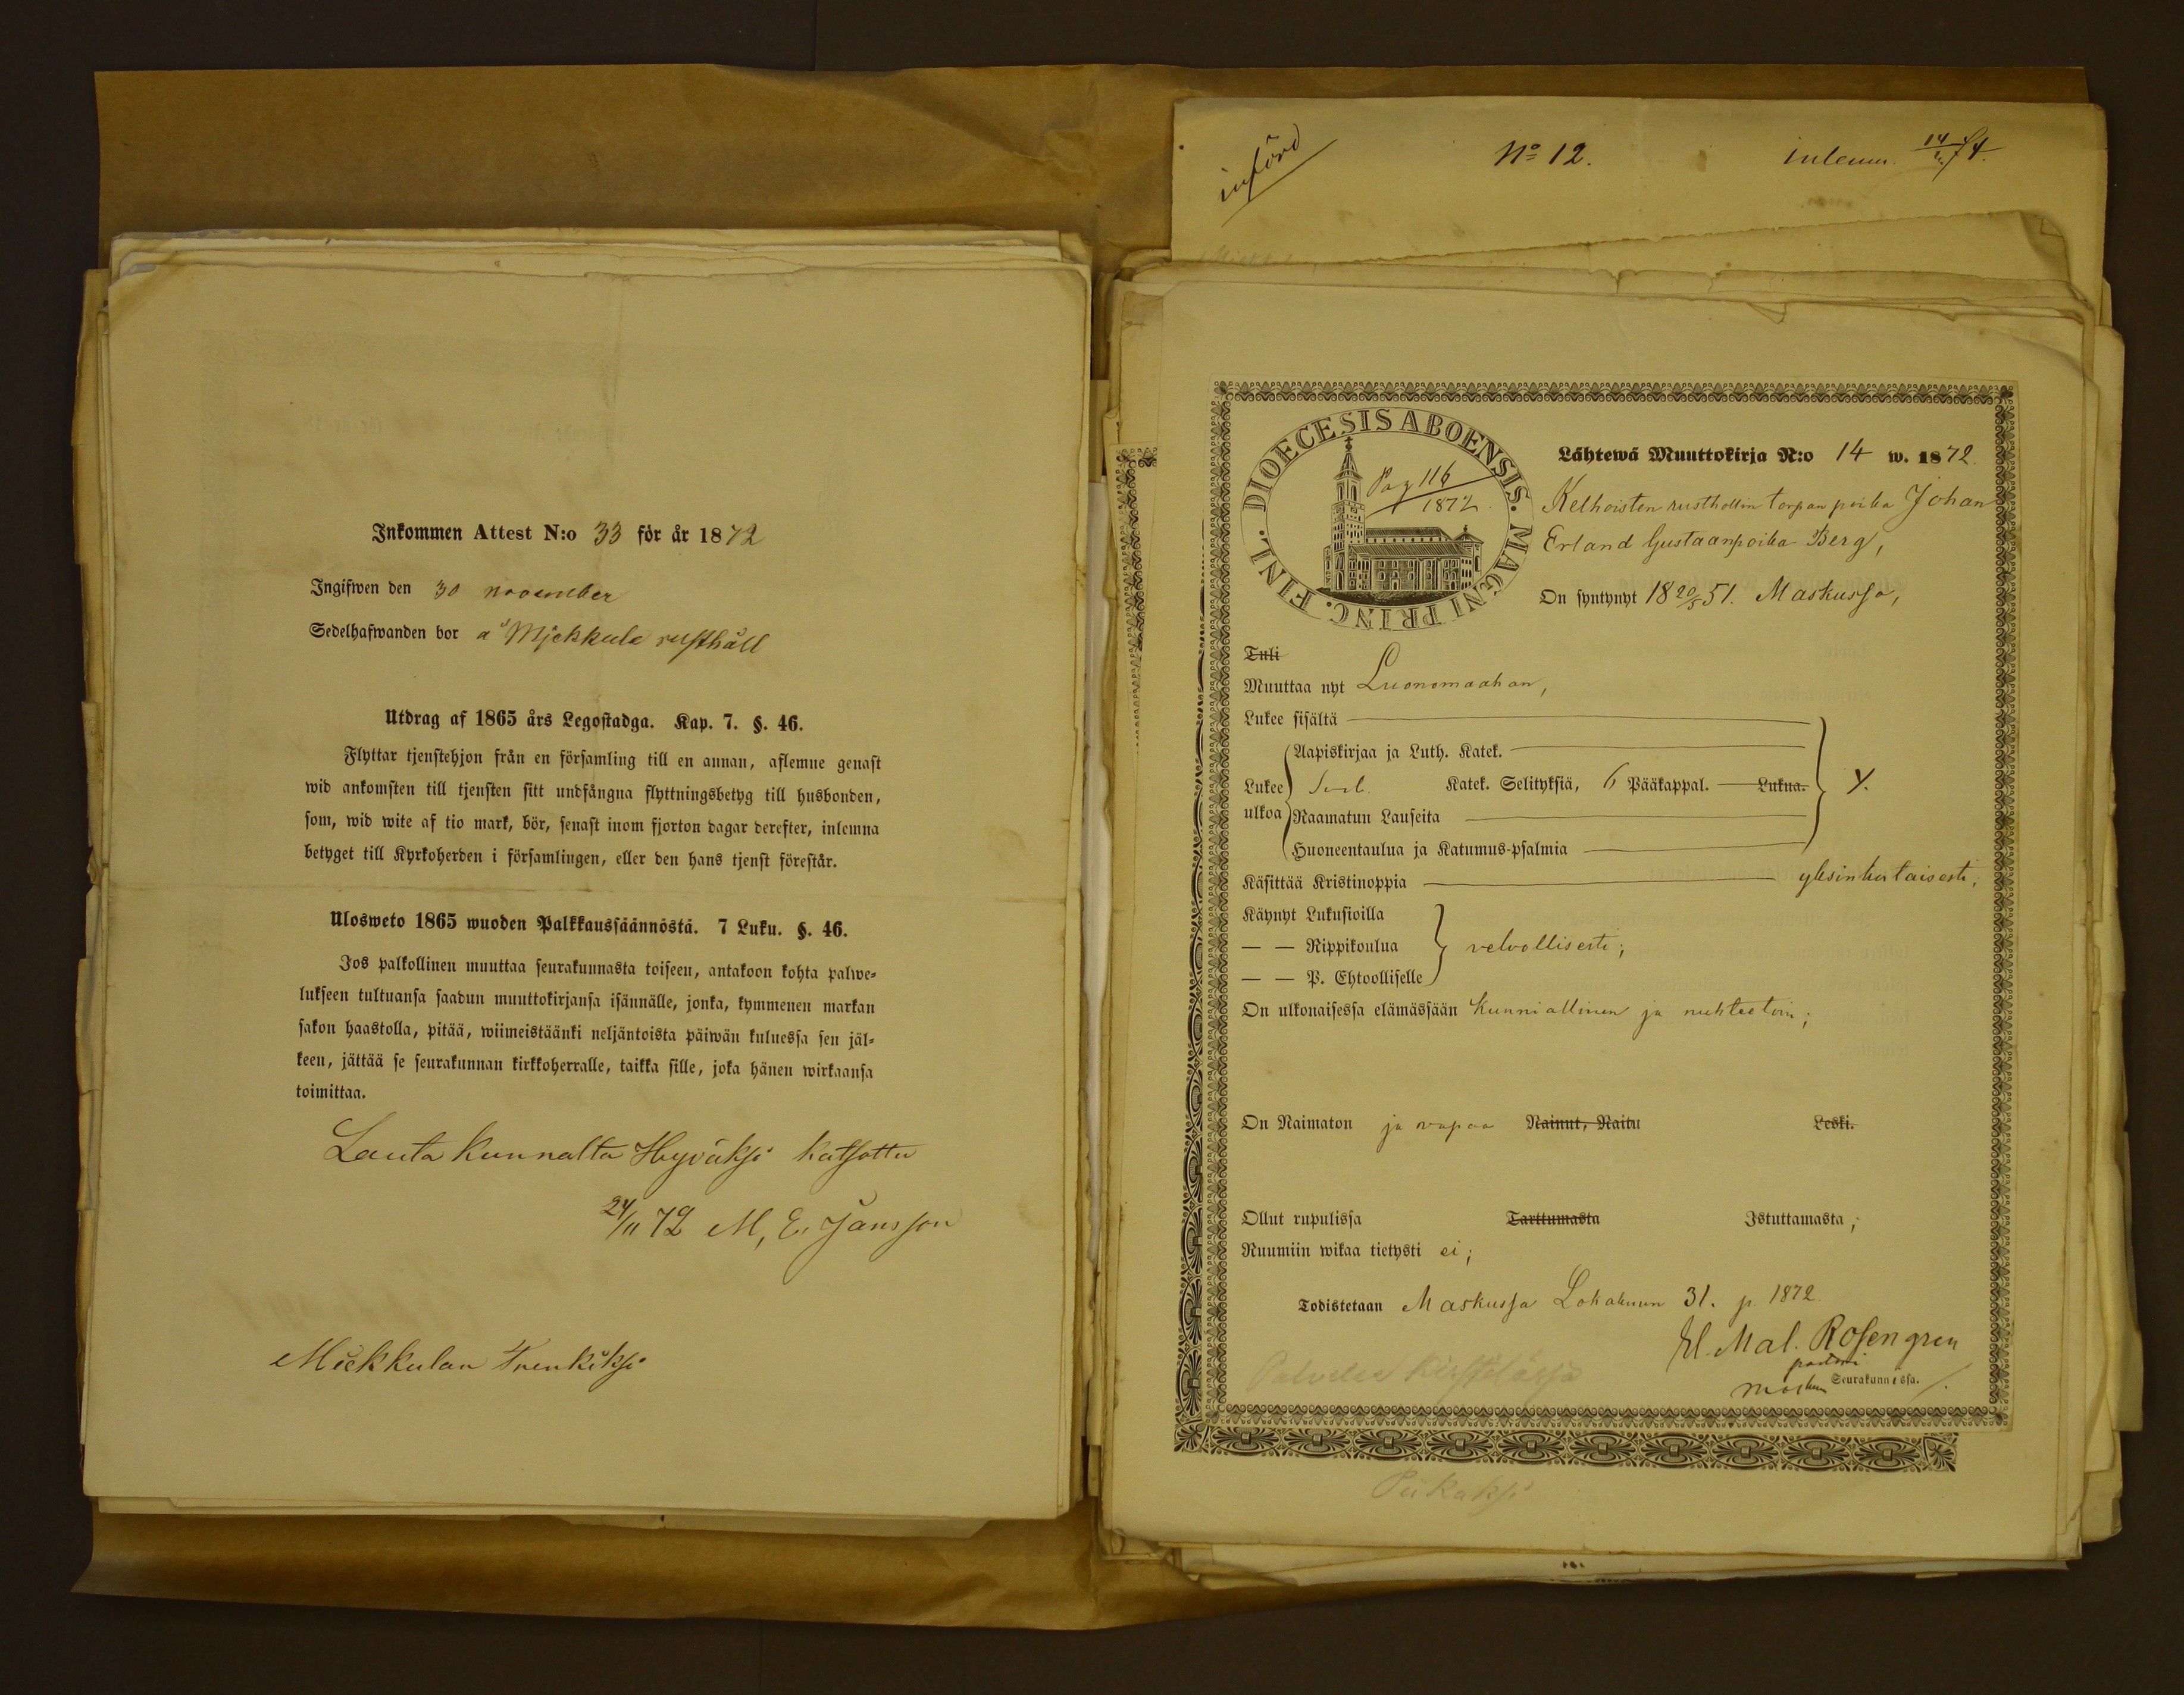 Inkommen Attest N:o 33 för år 1872
Ingifwen den 30 november
Sedelhafwanden bor å Mjekkula rusthåll
Utdrag af 1865 års Legostadga. Kap. 7. §. 46.
Flyttar tjenstehjon från en församling till en annan, aflemne genast
wid ankomsten till tjensten sitt undfångna flyttningsbetyg till husbonden,
som, wid wite af tio mark, bör, senast inom fjorton dagar derefter, inlemna
betyget till Kyrkoherden i församlingen, eller den hans tjenst förestår.
Ulosweto 1865 wuoden Palkkaussäännöstä. 7 Luku. §. 46.
Jos palkollinen muuttaa seurakunnasta toiseen, antakoon kohta palwe=
lukseen tultuansa saadun muuttokirjansa isännälle, jonka, kymmenen markan
sakon haastolla, pitää, wiimeistäänki neljäntoista päiwän kuluessa sen jäl=
keen, jättää se seurakunnan kirkkoherralle, taikka sille, joka hänen wirkaansa
toimittaa.
Lauta kunnalta Hyväksi katsottu
24/11 72 M, E. Jansson
Miekkulan Trenkiksi
införd
No 12.
inlemn. 14/74.
DIOECESIS ABOENSIS. MAGNI PRINC. FINL.
Pag 116
1872.
Lähtewä Muuttokirja N:o 14 w. 1872.
Kelhoisten rusthollin torpan poika Johan
Erland Gustaanpoika Berg,
On syntynyt 18 20/5 51. Maskussa,
Tuli
Muuttaa nyt Luonomaahan,
Lukee sisältä
Aapiskirjaa ja Luth. Katek.
Lukee
ulkoa
Katek. Selityksiä, 6 Pääkappal. Lukua. y.
Raamatun Lauseita
Huoneentaulua ja Katumus-psalmia
Käsittää Kristinoppia yksinkertaisesti;
Käynyt Lukusioilla
— — Rippikoulua velvollisesti;
— — P. Ehtoolliselle
On ulkonaisessa elämässään kunniallinen ja nuhteetoin;
On Naimaton ja vapaa Nainut, Naitu Leski.
Ollut rupulissa Tarttumasta Istuttamasta;
Ruumiin wikaa tietysti ei;
Todistetaan Maskussa Lokakuun 31. p. 1872.
Mal. Rosengren
pastori
Maskun Seurakunnassa.
Palvelee
Piikaksi